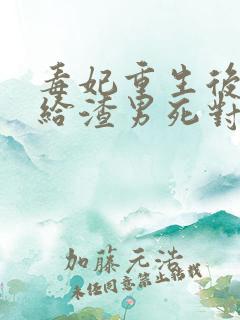 毒妃重生後
給渣男死對
加藤元浩
未經同意禁止轉載